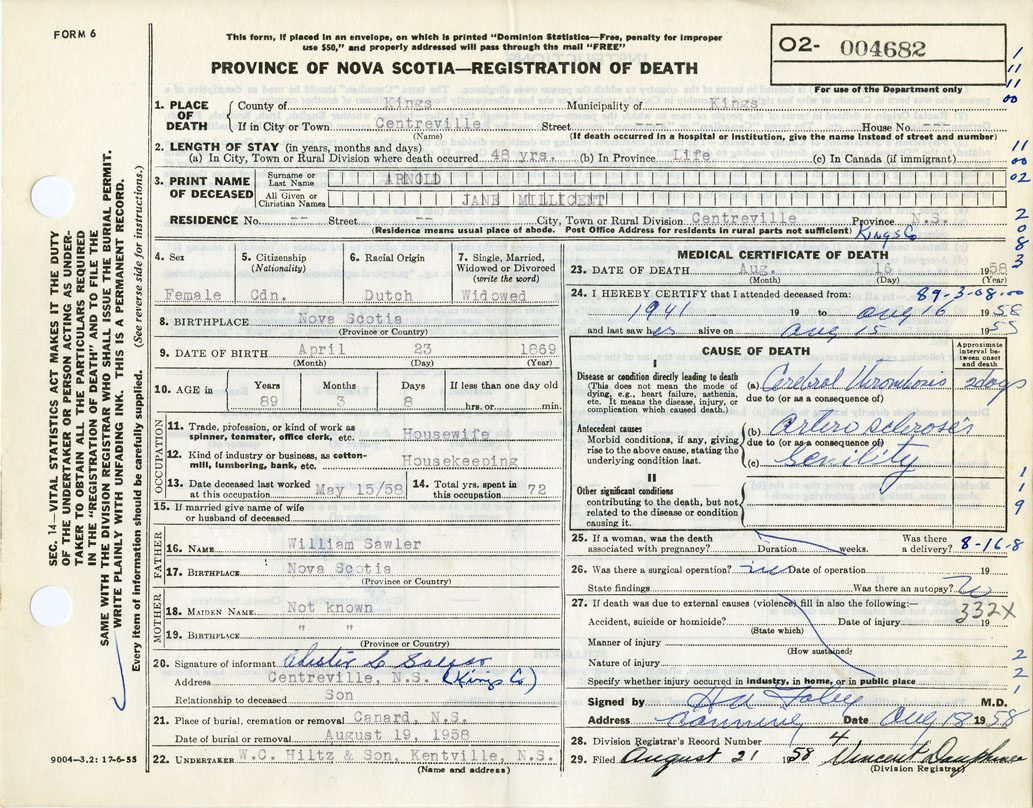 FORM 6
This form, if placed in an envelope, on which is printed "Dominion Statistics—Free, penalty for improper
use $50," and properly addressed will pass through the mail "FREE"
PROVINCE OF NOVA SCOTIA—REGISTRATION OF DEATH
O2- 004682
For use of the Department only
1
11
11
00
11
00
02
2
0
8
3
1. PLACE OF DEATH
County of Kings Municipality of Kings
If in City or Town Centreville Street --- House No. ---
(Name) (If death occurred in a hospital or institution, give the name instead of street and number)
2. LENGTH OF STAY (in years, months and days)
(a) In City, Town or Rural Division where death occurred 48 yrs. (b) In Province life (c) In Canada (if immigrant)
3. PRINT NAME OF DECEASED
Surname or Last Name ARNOLD
All Given or Christian Names JANE MILLICENT
RESIDENCE No. -- Street -- City, Town or Rural Division Centreville Province N.S.
(Residence means usual place of abode. Post Office Address for residents in rural parts not sufficient) Kings Co
4. Sex
Female
5. Citizenship
(Nationality)
Cdn.
6. Racial Origin
Dutch
7. Single, Married,
Widowed or Divorced
(write the word)
Widowed
8. BIRTHPLACE Nova Scotia
(Province or Country)
9. DATE OF BIRTH April 23 1869
(Month) (Day) (Year)
10. AGE in
Years Months Days If less than one day old
89 3 8 hrs. or min.
OCCUPATION
11. Trade, profession, or kind of work as
spinner, teamster, office clerk, etc. Housewife
12. Kind of industry or business, as cotton-
mill, lumbering, bank, etc. Housekeeping
13. Date deceased last worked
at this occupation May 15/58
14. Total yrs. spent in
this occupation 72
15. If married give name of wife
or husband of deceased
FATHER
16. NAME William Sawler
17. BIRTHPLACE Nova Scotia
(Province or Country)
MOTHER
18. MAIDEN NAME Not known
19. BIRTHPLACE " "
(Province or Country)
20. Signature of informant
Address Centreville, N.S. (Kings Co)
Relationship to deceased Son
21. Place of burial, cremation or removal Canard, N.S.
Date of burial or removal August 19, 1958
22. UNDERTAKER W.C. Hiltz & Son, Kentville, N.S.
(Name and address)
MEDICAL CERTIFICATE OF DEATH
23. DATE OF DEATH Aug. 16 1958
(Month) (Day) (Year)
24. I HEREBY CERTIFY that I attended deceased from: 89-3-08-00
1941 19 to Aug 16 1958
and last saw her alive on Aug 15 1955
CAUSE OF DEATH
Approximate
interval be-
tween onset
and death
I
Disease or condition directly leading to death
(This does not mean the mode of
dying, e.g., heart failure, asthenia,
etc. It means the disease, injury, or
complication which caused death.)
(a) Cerebral Thrombosis 2 days
due to (or as a consequence of)
Antecedent causes
Morbid conditions, if any, giving
rise to the above cause, stating the
underlying condition last.
(b) Arterio sclerosis
due to (or as a consequence of)
(c) Senility
II
Other significant conditions
contributing to the death, but not
related to the disease or condition
causing it.
1
1
9
25. If a woman, was the death
associated with pregnancy? Duration weeks.
Was there
a delivery? 8-16-8
26. Was there a surgical operation? no Date of operation 19
State findings Was there an autopsy? No
27. If death was due to external causes (violence) fill in also the following:—
332X
Accident, suicide or homicide? Date of injury 19
(State which)
Manner of injury
(How sustained)
Nature of injury
Specify whether injury occurred in industry, in home, or in public place
2
2
1
Signed by Foley M.D.
Address Canning Date Aug 18 1958
28. Division Registrar's Record Number 4
29. Filed August 21 1958 Vincent
(Division Registrar)
SEC. 14—VITAL STATISTICS ACT MAKES IT THE DUTY
OF THE UNDERTAKER OR PERSON ACTING AS UNDER-
TAKER TO OBTAIN ALL THE PARTICULARS REQUIRED
IN THE "REGISTRATION OF DEATH" AND TO FILE THE
SAME WITH THE DIVISION REGISTRAR WHO SHALL ISSUE THE BURIAL PERMIT.
WRITE PLAINLY WITH UNFADING INK. THIS IS A PERMANENT RECORD.
Every item of information should be carefully supplied. (See reverse side for instructions.)
9004—3.2: 17-6-55